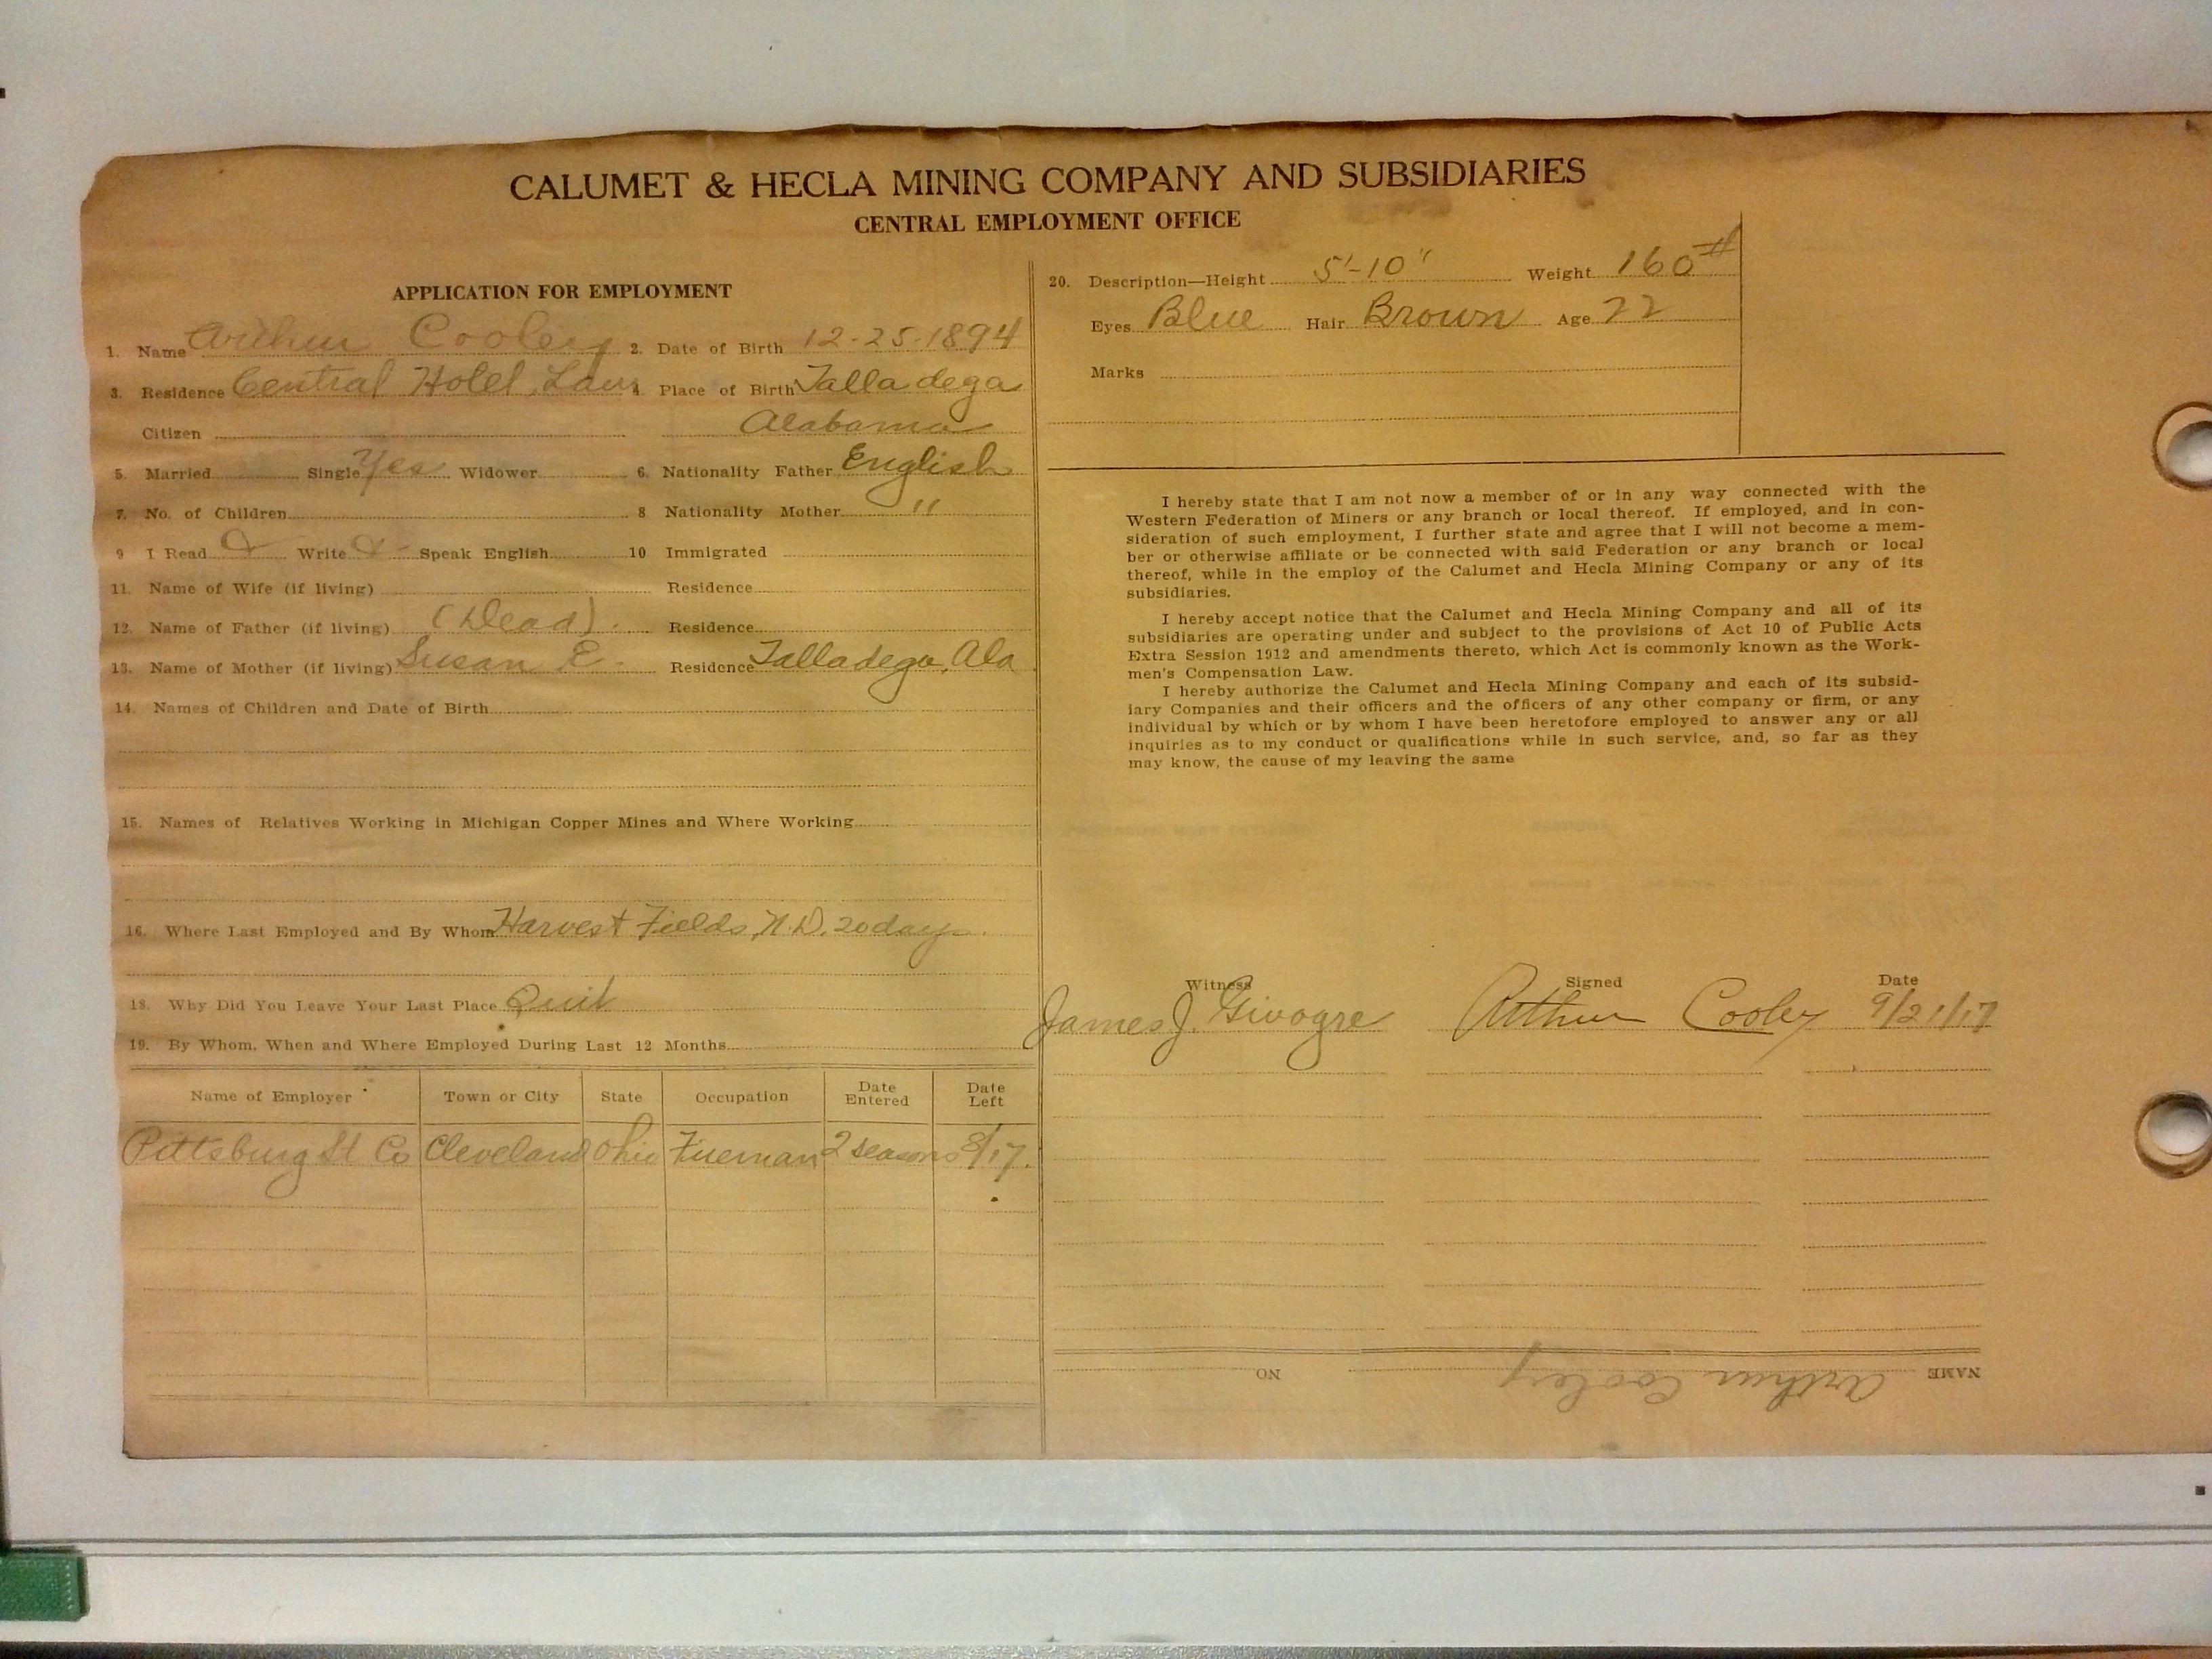 CALUMET & HECLA MINING COMPANY AND SUBSIDIARIES
CENTRAL EMPLOYMENT OFFICE
APPLICATION FOR EMPLOYMENT
1. Name Arthur Cooley 2. Date of Birth 12-25-1894
3. Residence Central Hotel, Laur 4. Place of Birth Talladega
Citizen Alabama
5. Married Single Yes Widower 6. Nationality Father English
7. No. of Children 8 Nationality Mother "
9 I Read Write Speak English 10 Immigrated
11. Name of Wife (if living) Residence
12. Name of Father (if living) (Dead). Residence
13. Name of Mother (if living) Susan E. Residence Talladega, Ala
14. Names of Children and Date of Birth
15. Names of Relatives Working in Michigan Copper Mines and Where Working
16. Where Last Employed and By Whom Harvest Fields, N.D. 20 days.
18. Why Did You Leave Your Last Place Quit
19. By Whom, When and Where Employed During Last 12 Months
Name of Employer Town or City State Occupation Date Entered Date Left
Pittsburg St Co Cleveland Ohio Fireman 2 seasons 8/17.
20. Description—Height 5'-10" Weight 160#
Eyes Blue Hair Brown Age 22
Marks
I hereby state that I am not now a member of or in any way connected with the
Western Federation of Miners or any branch or local thereof. If employed, and in con-
sideration of such employment, I further state and agree that I will not become a mem-
ber or otherwise affiliate or be connected with said Federation or any branch or local
thereof, while in the employ of the Calumet and Hecla Mining Company or any of its
subsidiaries.
I hereby accept notice that the Calumet and Hecla Mining Company and all of its
subsidiaries are operating under and subject to the provisions of Act 10 of Public Acts
Extra Session 1912 and amendments thereto, which Act is commonly known as the Work-
men's Compensation Law.
I hereby authorize the Calumet and Hecla Mining Company and each of its subsid-
iary Companies and their officers and the officers of any other company or firm, or any
individual by which or by whom I have been heretofore employed to answer any or all
inquiries as to my conduct or qualifications while in such service, and, so far as they
may know, the cause of my leaving the same
Witness Signed Date
James J. Givogre Arthur Cooley 9/21/17
NAME Arthur Cooley NO